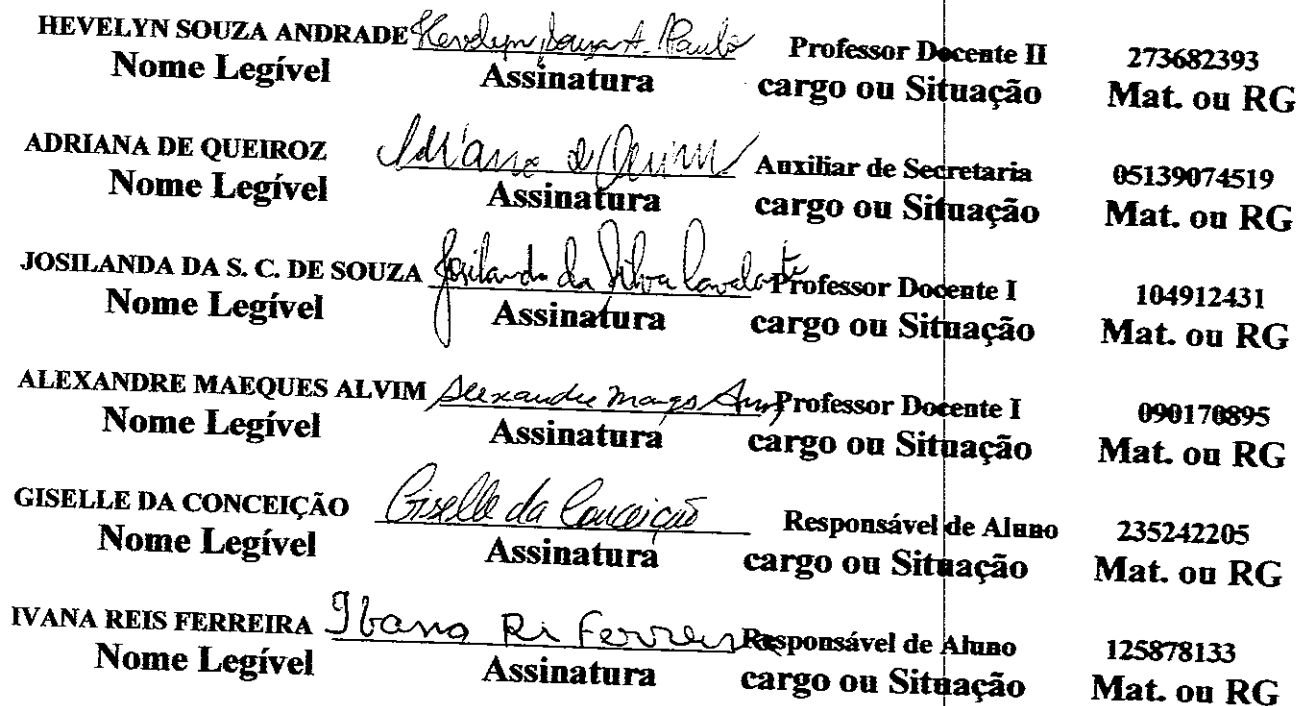 HEVELYN SOUZA ANDRADE Hevelyn Souza A. Paulo Professor Docente II 273682393
Nome Legível Assinatura cargo ou Situação Mat. ou RG
ADRIANA DE QUEIROZ Adriana Auxiliar de Secretaria 05139074519
Nome Legível Assinatura cargo ou Situação Mat. ou RG
JOSILANDA DA S. C. DE SOUZA Josilanda da Silva Cavalcante Professor Docente I 104912431
Nome Legível Assinatura cargo ou Situação Mat. ou RG
ALEXANDRE MAEQUES ALVIM Alexandre Professor Docente I 090170895
Nome Legível Assinatura cargo ou Situação Mat. ou RG
GISELLE DA CONCEIÇÃO Giselle da Conceição Responsável de Aluno 235242205
Nome Legível Assinatura cargo ou Situação Mat. ou RG
IVANA REIS FERREIRA Ibana Ri Ferreira Responsável de Aluno 125878133
Nome Legível Assinatura cargo ou Situação Mat. ou RG